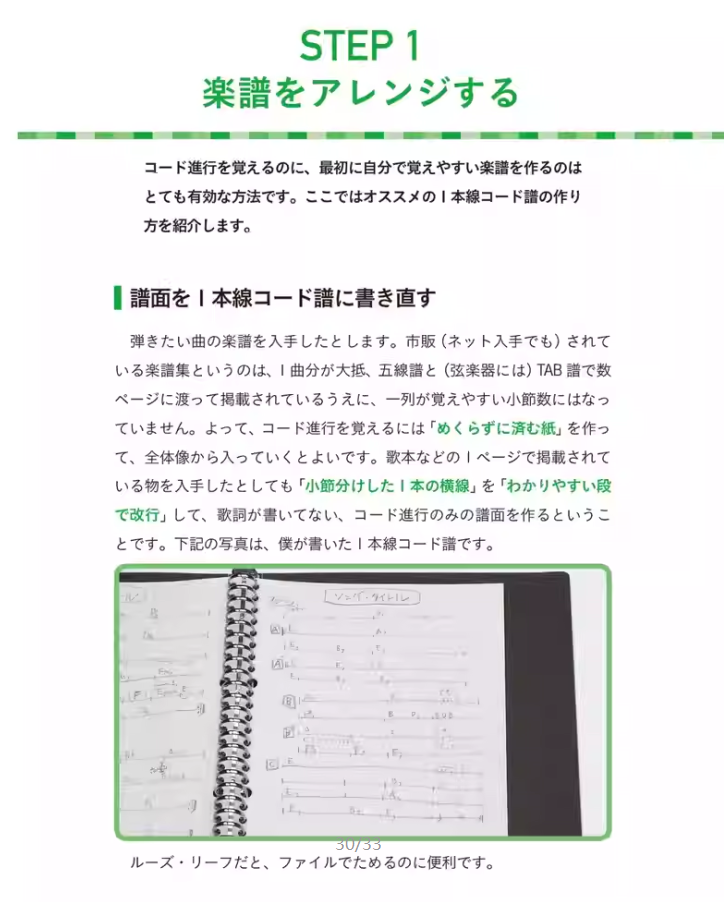 STEP 1
楽譜をアレンジする
コード進行を覚えるのに、最初に自分で覚えやすい楽譜を作るのは
とても有効な方法です。ここではオススメの1本線コード譜の作り
方を紹介します。
譜面を1本線コード譜に書き直す
弾きたい曲の楽譜を入手したとします。市販（ネット入手でも）されて
いる楽譜集というのは、1曲分が大抵、五線譜と（弦楽器には）TAB譜で数
ページに渡って掲載されているうえに、一列が覚えやすい小節数にはなっ
ていません。よって、コード進行を覚えるには「めくらずに済む紙」を作っ
て、全体像から入っていくとよいです。歌本などの1ページで掲載されて
いる物を入手したとしても「小節分けした1本の横線」を「わかりやすい段
で改行」して、歌詞が書いてない、コード進行のみの譜面を作るというこ
とです。下記の写真は、僕が書いた1本線コード譜です。
ソング・タイトル
A
A
B
B
C
30/33
ルーズ・リーフだと、ファイルでためるのに便利です。